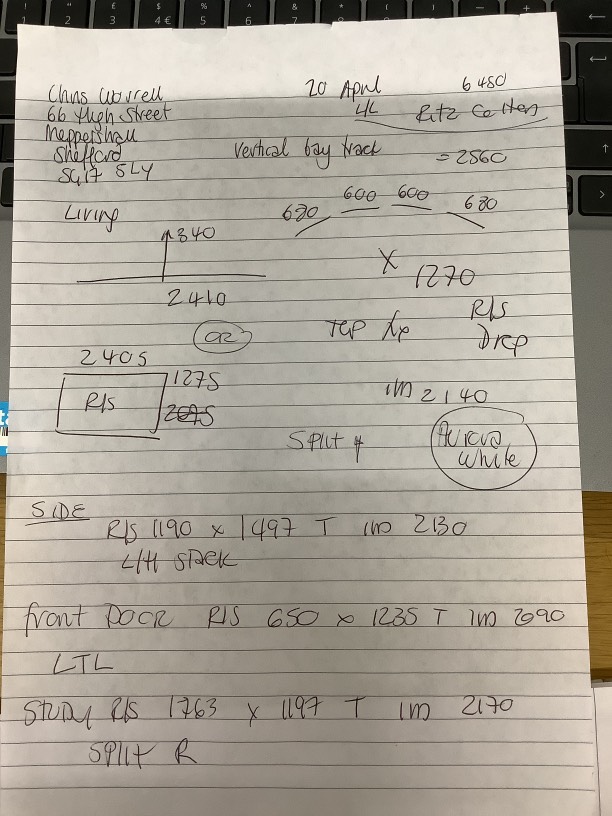 20 April 6480
Chris Worrell
66 High Street
Meppershall
Shefford
SG17 5LY
L/L Ritz Cotton
Vertical bay track = 2560
Living
680 600 600 680
840
2410
X 1270
OR
Top fix R/S Drop
2405
R/S
1275
2075
in 2140
Split 4
Aurora White
SIDE
R/S 1190 x 1497 T in 2130
L/H Stack
front DOOR R/S 650 x 1235 T in 2090
LTL
STUDY R/S 1763 x 1197 T in 2170
Split R